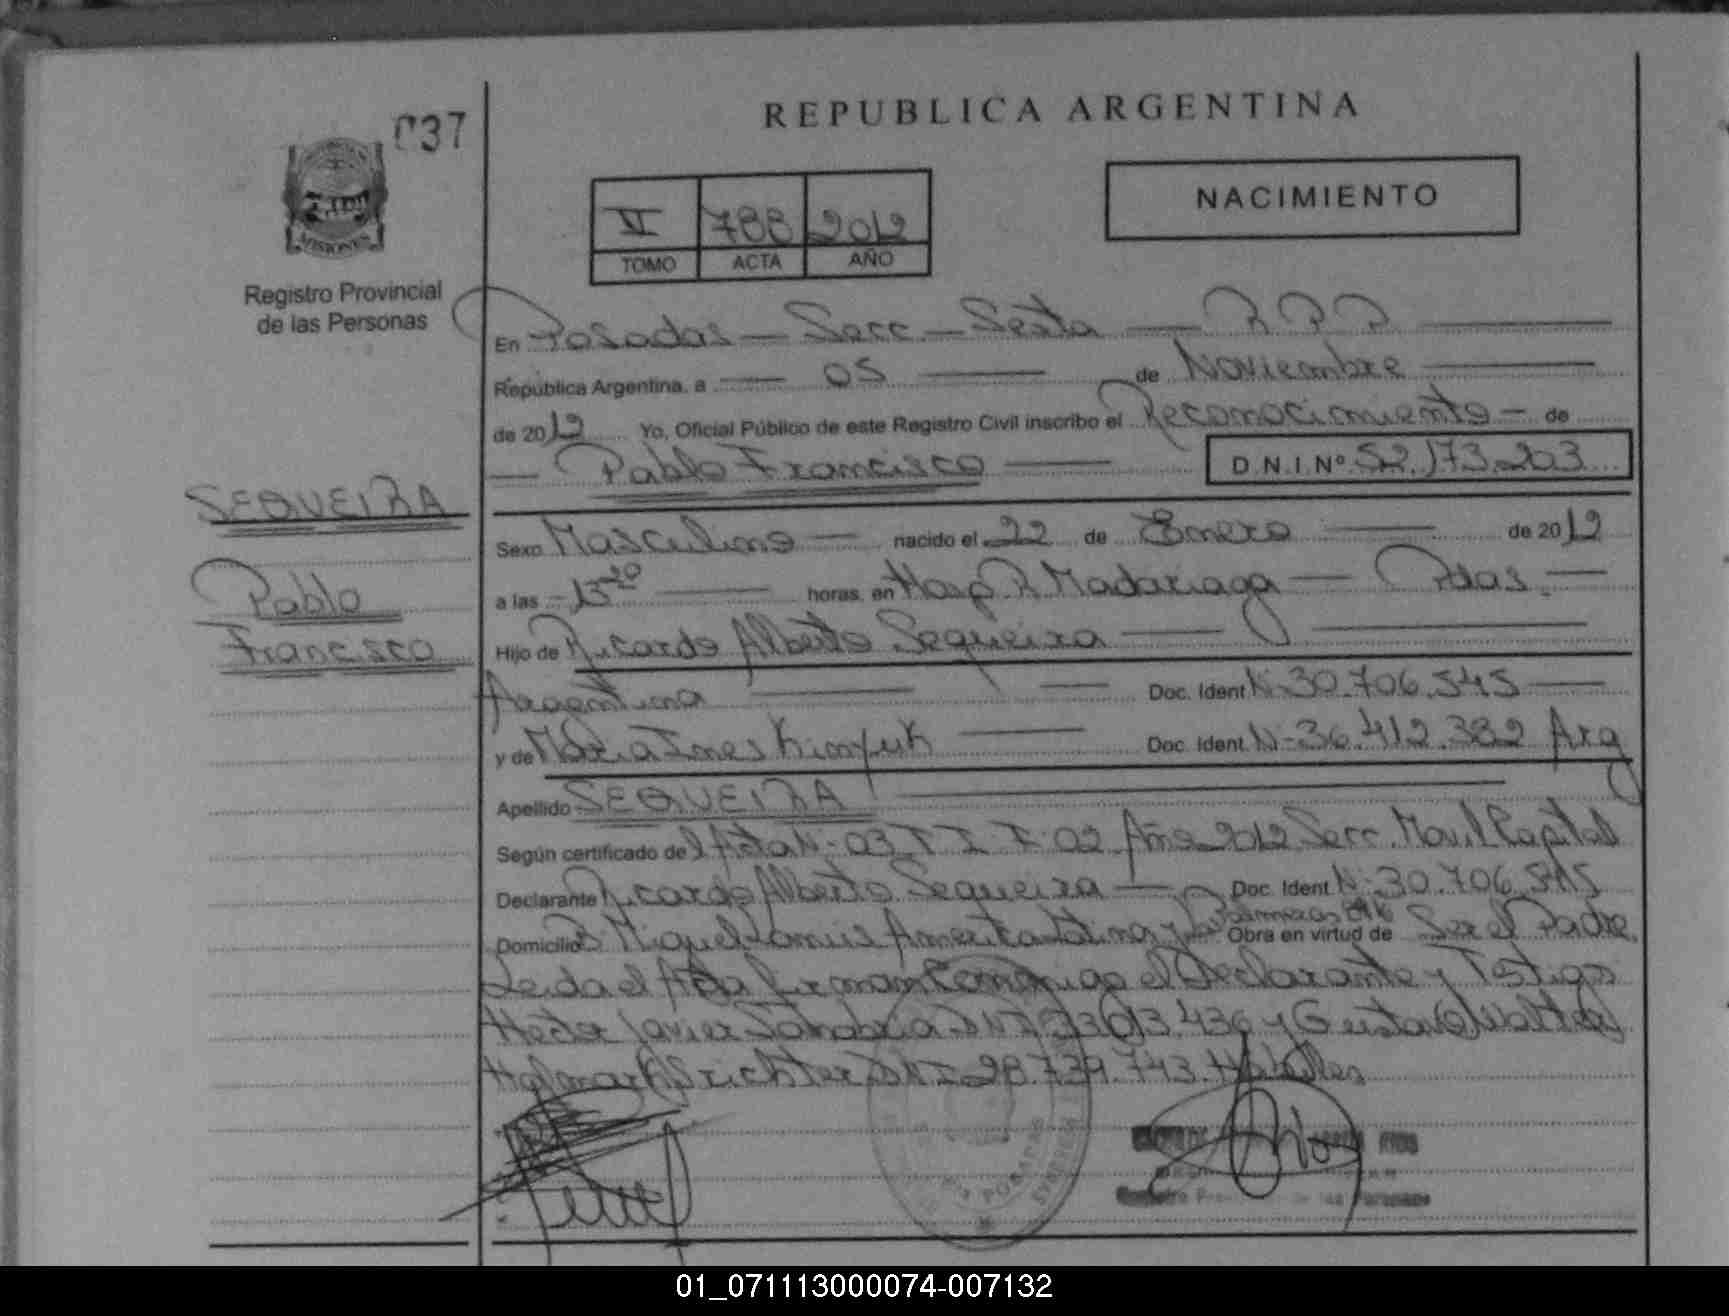 037
REPUBLICA ARGENTINA
NACIMIENTO
VI 788 2012
TOMO ACTA AÑO
MISIONES
Registro Provincial
de las Personas
En Posadas — Secc. — Sexta —
República Argentina, a — 05 — de Noviembre —
de 2012 Yo, Oficial Público de este Registro Civil inscribo el Reconocimiento — de
— Pablo Francisco — D.N.I.Nº 52.173.203
SEQUEIRA
Pablo
Francisco
Sexo Masculino — nacido el 22 de Enero — de 2012
a las 13 20 — horas, en Hosp R Madariaga — Pdas. —
Hijo de Ricardo Alberto Sequeira —
Argentina — Doc. Ident N- 30.706.545 —
y de Maria Ines Doc. Ident N- 36.412.382 Arg
Apellido SEQUEIRA —
Según certificado del Acta N- 03 T I F 02 Año 2012 Secc. Movil Capital
Declarante Ricardo Alberto Sequeira — Doc. Ident N- 30.706.545
Domicilio Miguel Lanus America Latina y Obra en virtud de Ser el Padre.
Leida el Acta firman Conmigo el Declarante y Testigos
Hector Javier Sanabria DNI y Gustavo Walter
DNI 28.739.743.
POSADAS
01_071113000074-007132